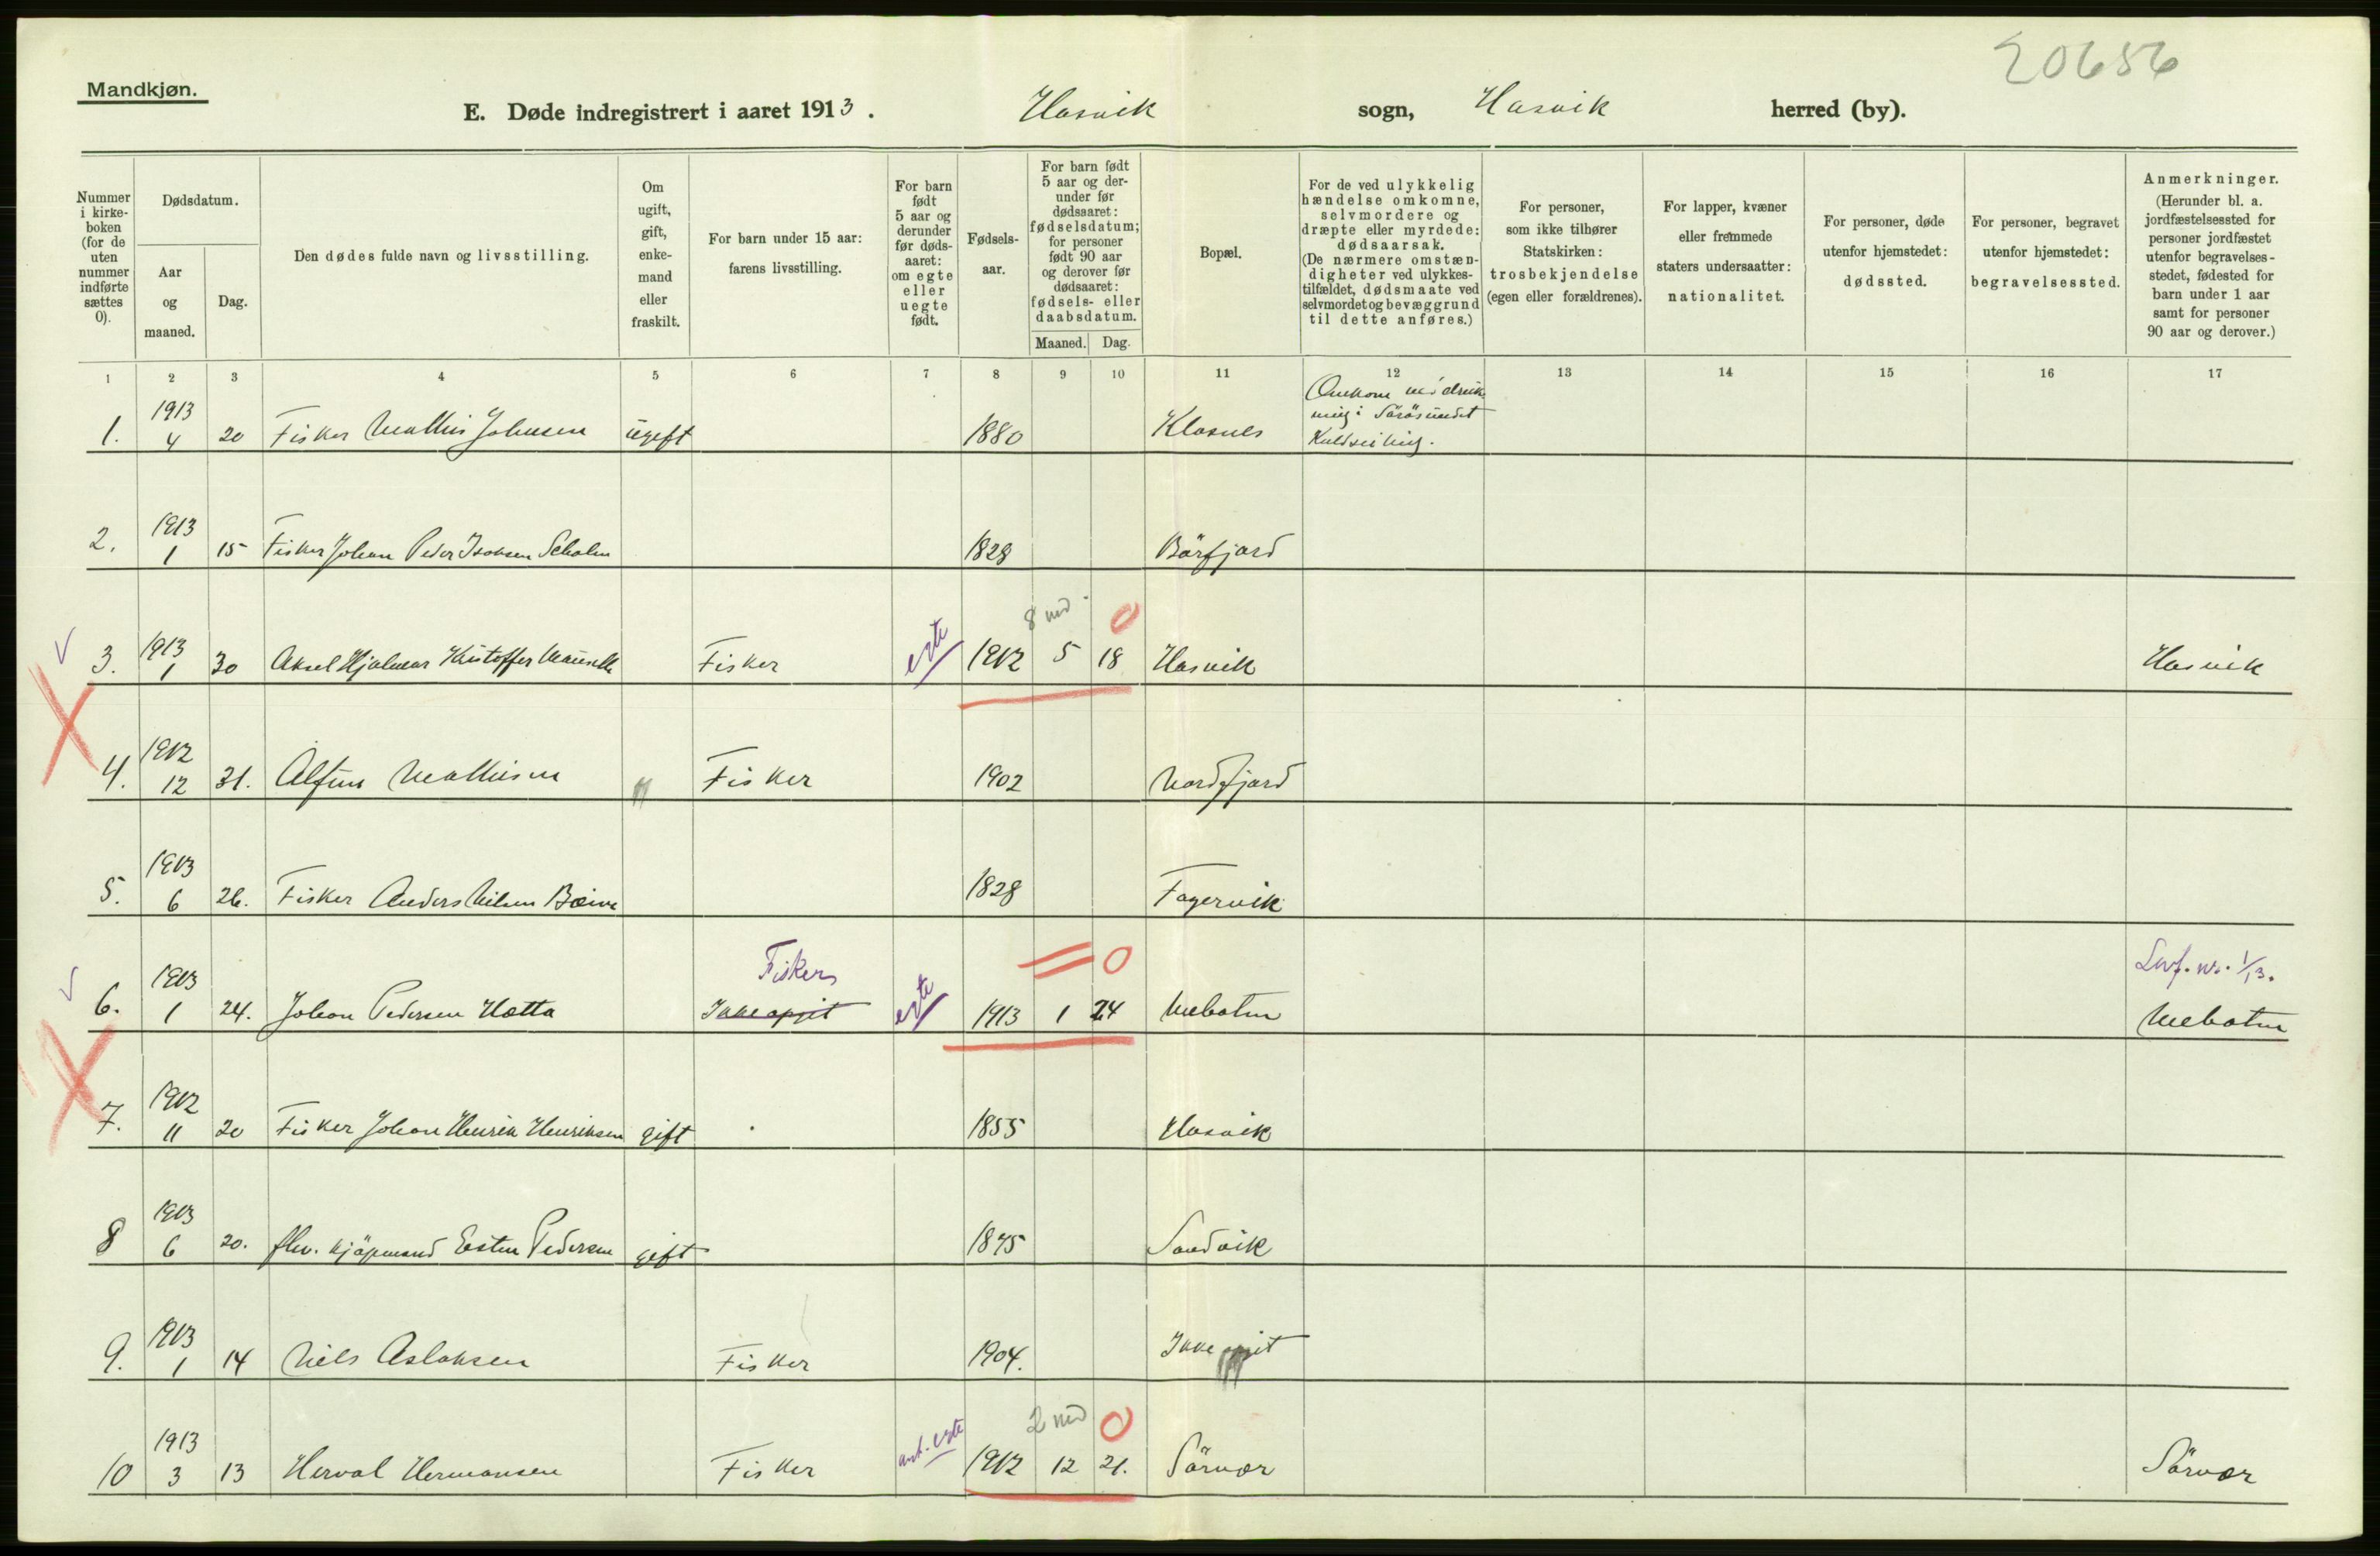 20656
Mandkjøn.
E. Døde indregistrert i aaret 1913. Hasvik sogn, Hasvik herred (by).
Nummer i kirkeboken (for de uten nummer indførte sættes 0).
Dødsdatum.
Aar og maaned.
Dag.
Den dødes fulde navn og livsstilling.
Om ugift, gift, enkemand eller fraskilt.
For barn under 15 aar: farens livsstilling.
For barn født 5 aar og derunder før dødsaaret: om egte eller uegte født.
Fødselsaar.
For barn født 5 aar og derunder før dødsaaret: fødselsdatum; for personer født 90 aar og derover før dødsaaret: fødsels- eller daabsdatum.
Maaned. Dag.
Bopæl.
For de ved ulykkelig hændelse omkomne, selvmordere og dræpte eller myrdede: dødsaarsak. (De nærmere omstændigheter ved ulykkestilfældet, dødsmaate ved selvmordet og bevæggrund til dette anføres.)
For personer, som ikke tilhører Statskirken: trosbekjendelse (egen eller forældrenes).
For lapper, kvæner eller fremmede staters undersaatter: nationalitet.
For personer, døde utenfor hjemstedet: dødssted.
For personer, begravet utenfor hjemstedet: begravelsessted.
Anmerkninger. (Herunder bl. a. jordfæstelsessted for personer jordfæstet utenfor begravelsesstedet, fødested for barn under 1 aar samt for personer 90 aar og derover.)
1 2 3 4 5 6 7 8 9 10 11 12 13 14 15 16 17
1. 1913 4 20 Fisker Mathis Johnsen ugift 1880 Omkom ved drukning i Sörösundet
2. 1913 1 15 Fisker Johan Peder Isaksen 1828 Börfjord
3. 1913 1 30 Aksel Hjalmar Kristoffer Fisker egte 1912 5 18 8 md. 0 Hasvik Hasvik
4. 1912 12 31. Mathisen Fisker 1902 Nordfjord
5. 1913 6 26. Fisker Anders Nilsen 1828 Fagervik
6. 1913 1 24. Johan Pedersen Hætta Fiskers Ikke opgit egte 1913 1 24 0 Mebotn Mebotn
7. 1912 11 20 Fisker Johan Henrik Henriksen gift 1855 Hasvik
8 1913 6 20. fhv. kjöpmand Pedersen gift 1845 Sandvik
9. 1913 1 14 Niels Aslaksen Fisker 1904. Ikke opgit
10 1913 3 13 Herval Hermansen Fisker ant. egte 1912 12 21. 2 md 0 Sörvær Sörvær